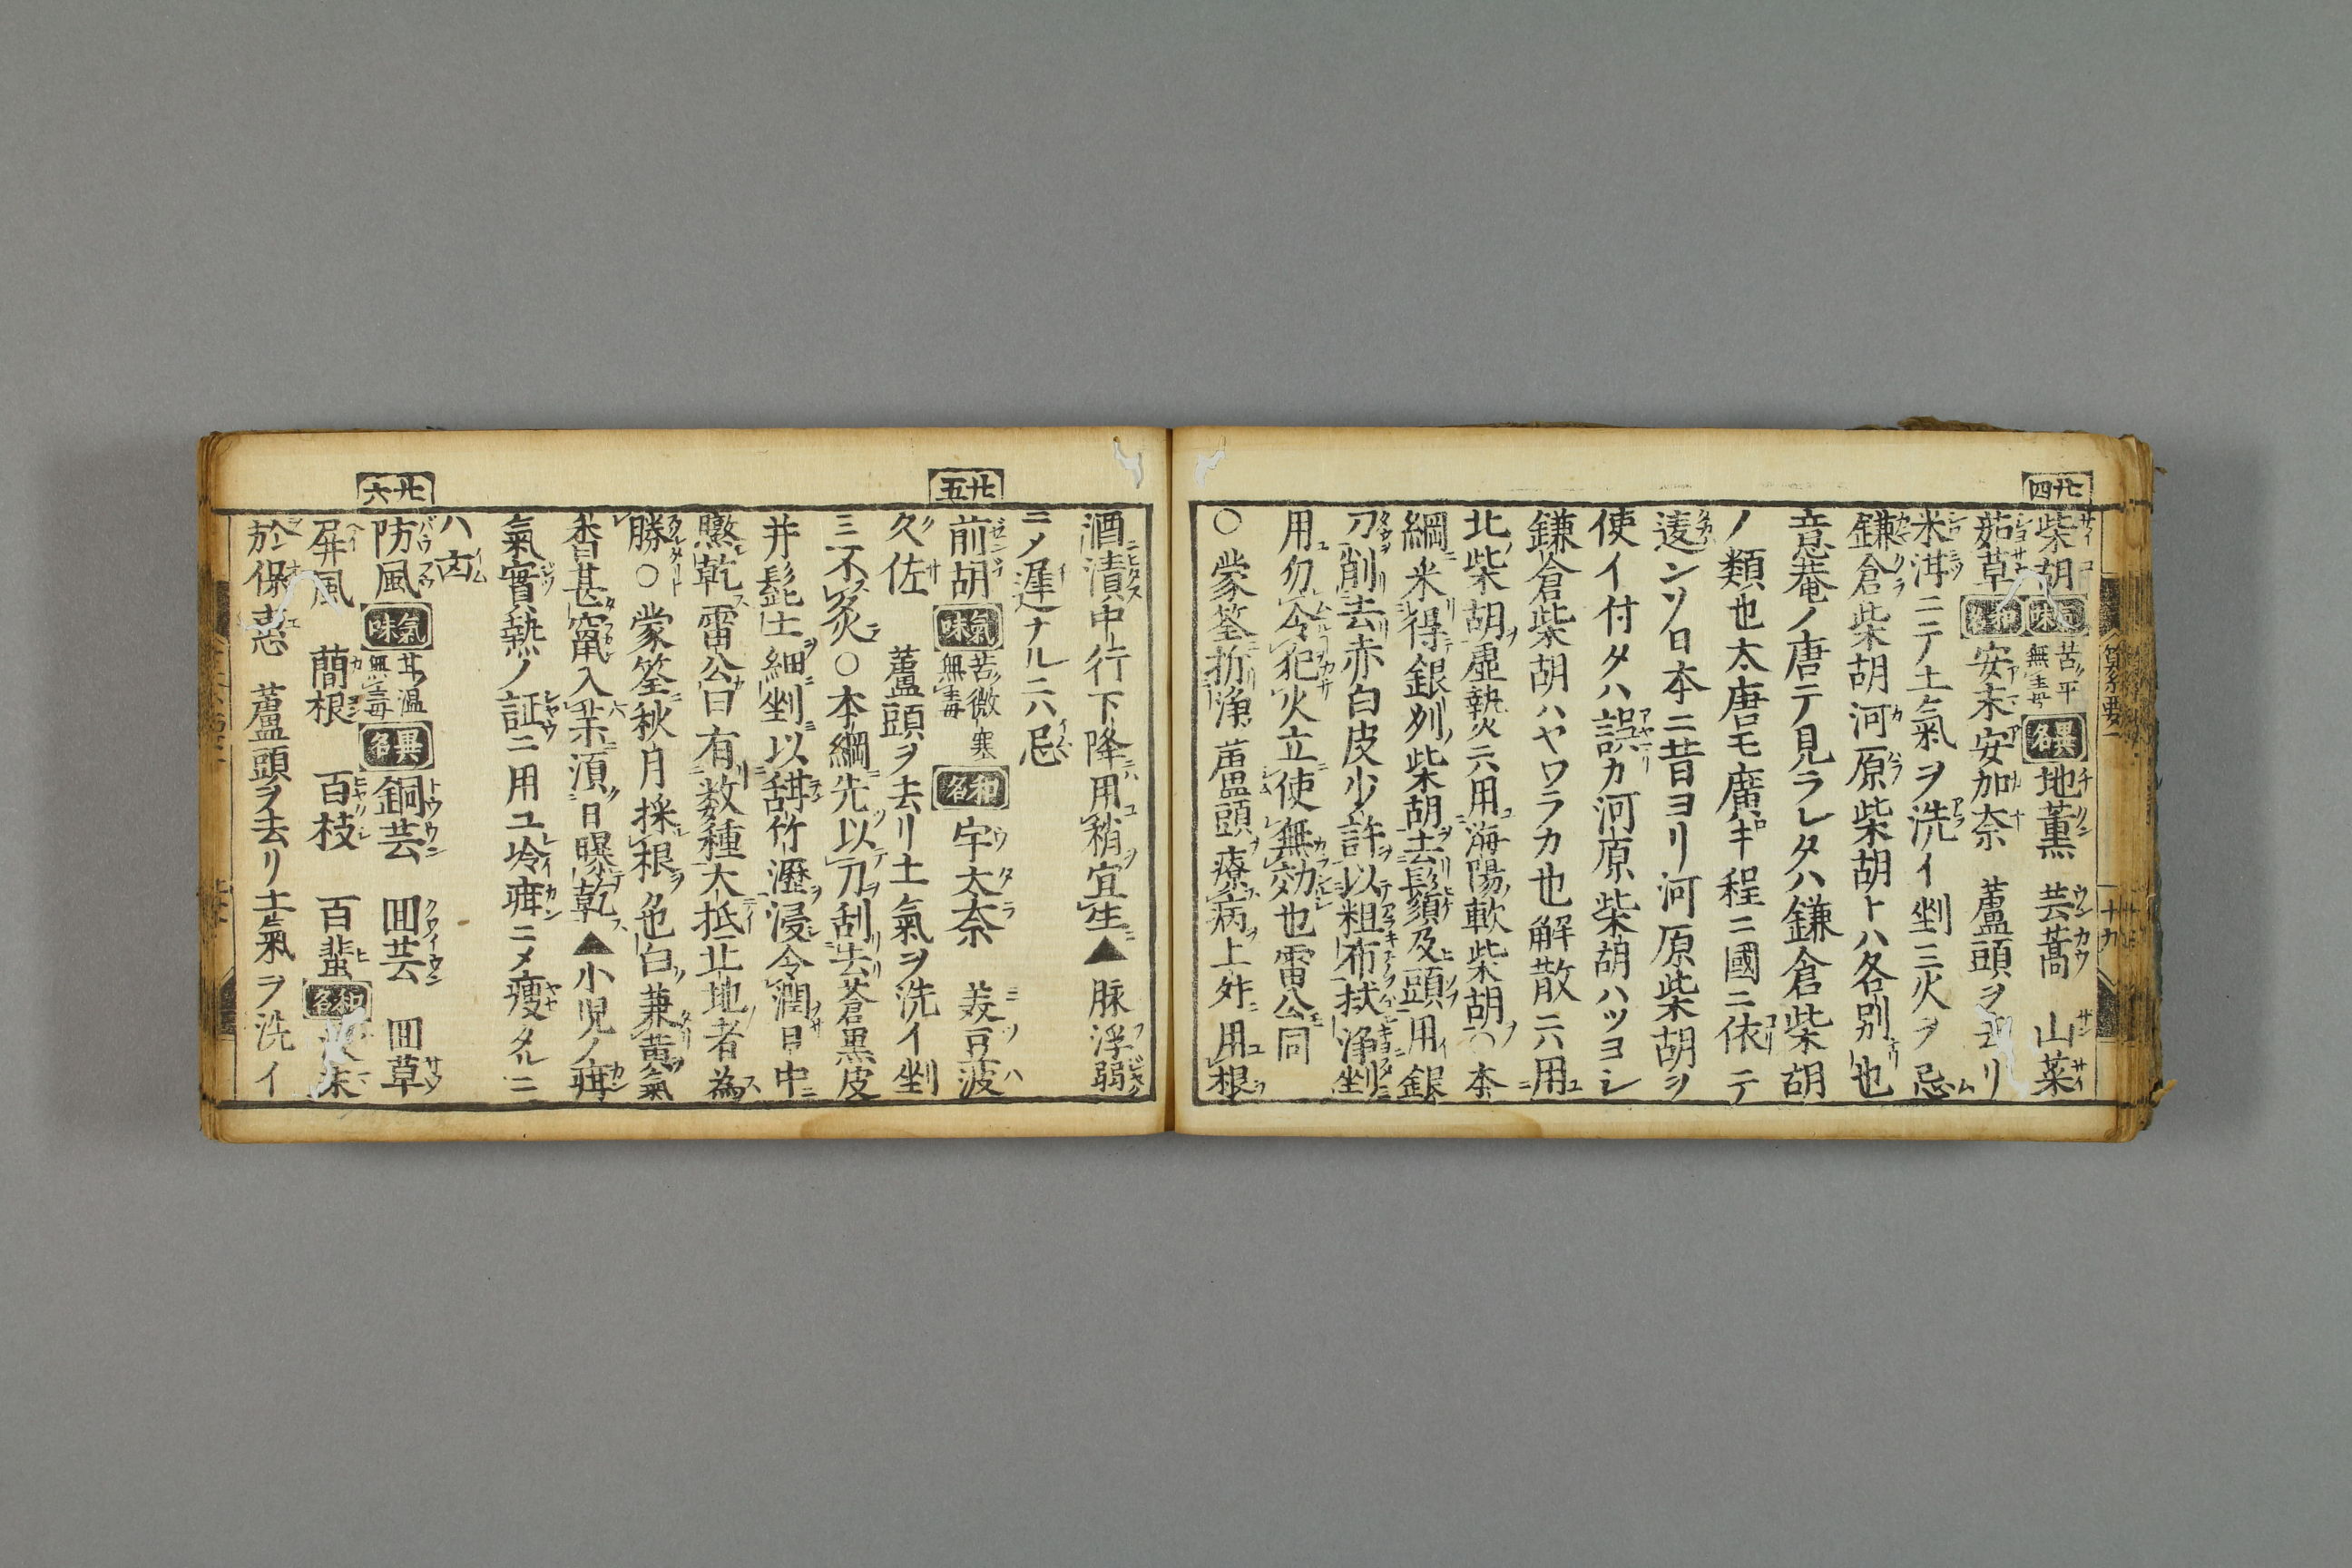 廿四
柴胡 氣味 苦平無毒 異名 地薫 芸蒿 山菜
茹草 和名 安末安加奈 蘆頭ヲ去リ
米泔ニテ土氣ヲ洗イ剉三火ヲ忌ム
鎌倉柴胡河原柴胡トハ各別也
意菴ノ唐テ見ラレタハ鎌倉柴胡
ノ類也太唐モ廣キ程ニ國ニ依テ
違ンソ日本ニ昔ヨリ河原柴胡ヲ
使イ付タハ誤カ河原柴胡ハツヨシ
鎌倉柴胡ハヤワラカ也解散ニ六用
北柴胡虛熱ニ六用海陽軟柴胡○本
綱米得銀列柴胡去鬚及頭用銀
刀削去赤白皮少許以粗布拭淨剉
用勿令犯火立使無効也雷公同
○蒙筌折淨蘆頭療病上升用根
酒漬中行下降用稍宜生▲脉浮弱
ニノ遅ナルニ六忌
廿五
前胡 氣味 苦微寒無毒 和名 宇太奈 美豆波
久佐 蘆頭ヲ去リ土氣ヲ洗イ剉
三不炙○本綱先以刀刮去蒼黒皮
并髭土細剉以甜竹瀝浸令潤日中
㬠乾雷公曰有数種大抵止地者為
勝○蒙筌秋月採根色白兼黃氣
香甚竄入藥須日曝乾▲小児ノ疳
氣實熱ノ証ニ用ユ冷疳ニメ痩タルニ
ハ㐫
廿六
防風 氣味 甘温無毒 異名 銅芸 囬芸 囬草
屏風 蕳根 百枝 百蜚 和名
於保 蘆頭ヲ去リ土氣ヲ洗イ